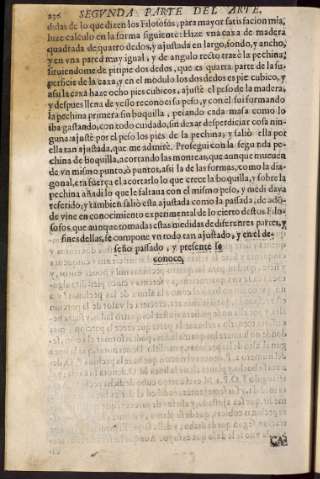 236 SEGVNDA PARTE DEL ARTE.
dulas de lo que dizen los Filosofos, para mayor satisfacion mia,
hize calculo en la forma siguiente: Haze vna caxa de madera
quadrada de quatro dedos, y ajustada en largo, fondo, y ancho,
y en vna pared muy igual, y de angulo recto trazè la pechina;
siruiendome de pitipie dos dedos, que es quarta parte de la superficie
de la caxa, y en el modulo los dos dedos es pie cubico, y
assi la caxa haze ocho pies cubicos, ajustè el peso de la madera,
y despues llena de yesso reconoci su peso, y con el fui formando
la pechina primera sin boquilla, pesando cada masa como lo
iba gastando, con todo cuidado, sin dexar desperdiciar cosa ninguna
ajustè por el peso los pies de la pechina; y saliò ella por
ella tan ajustada, que me admirè. Prosegui con la segunda pechina
de boquilla, acortando las monteas, que aunque mueuen
de vn mismo punto, ò puntos, assi la de las formas, como la diagonal,
era fuerça el acortarlo lo que crece la boquilla, y sobre la
pechina añadi lo que le faltaua con el mismo peso, y medi daya
referido, y tambien saliò esta ajustada como la passada, de adonde
vine en conocimiento experimental de lo cierto destos Filosofos,
que aunque tomadas estas medidas de diferentes partes, y
fines dellas, se compone vn todo tan ajustado, y en el deseño
passado, y presente se
conoce.
CA-